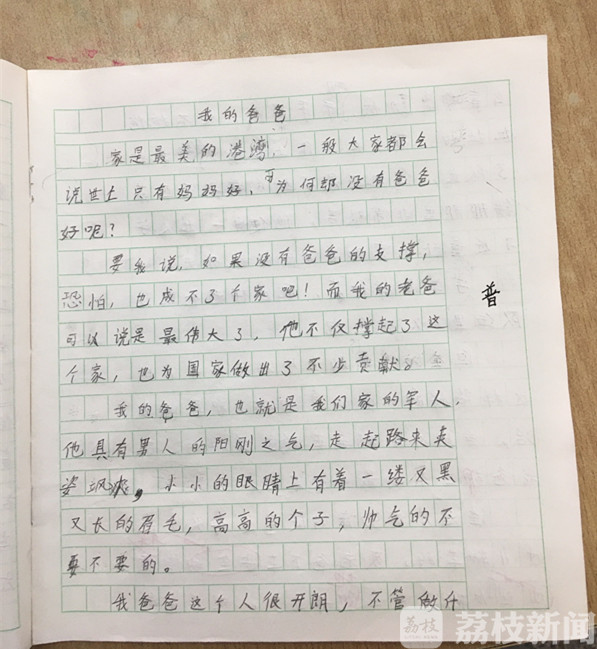 我的爸爸
家是最美的港湾，一般大家都会
说世上只有妈妈好，可为何却没有爸爸
好呢？
要我说，如果没有爸爸的支撑，
恐怕，也成不了个家吧！而我的老爸
可以说是最伟大了，他不仅撑起了这
个家，也为国家做出了不少贡献。
我的爸爸，也就是我们家的军人，
他具有男人的阳刚之气，走起路来英
姿飒爽，小小的眼睛上有着一缕又黑
又长的眉毛，高高的个子，帅气的不
要不要的。
我爸爸这个人很开朗，不管做什
普
荔枝
荔枝新闻